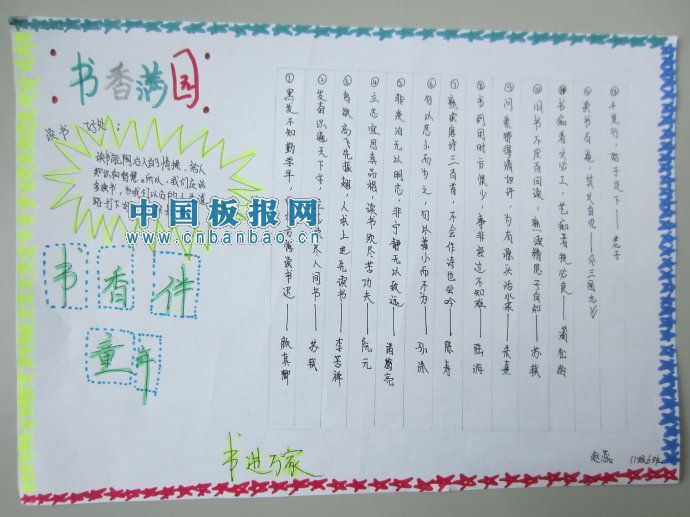 书香满园
读书好处：
读书能陶冶人的情操，给人
知识和智慧。所以，我们应该
多读书，为我们以后的人生道
中国板报网
www.cnbanbao.cn
书香伴
童年
①黑发不知勤学早，
读书迟——颜真卿
②发奋识遍天下字，
人间书——苏轼
③鸟欲高飞先振翅，人求上进先读书——李苦禅
④立志宜思真品格，读书须尽苦功夫——阮元
⑤非淡泊无以明志，非宁静无以致远——诸葛亮
⑥勿以恶小而为之，勿以善小而不为——
⑦熟读唐诗三百首，不会作诗也会吟——
⑧书到用时方恨少，事非经过不知难——陆游
⑨问渠那得清如许，为有源头活水来——朱熹
⑩旧书不厌百回读，熟读精思子自知——苏轼
书痴者文必工，艺痴者技必良——蒲松龄
读书百遍，其义自见——《三国志》
千里行，始于足下——老子
书进万家
赵蕊 11级6班